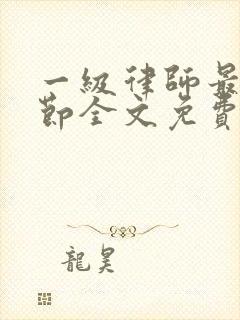 一級律師最
節全文免費
龍昊